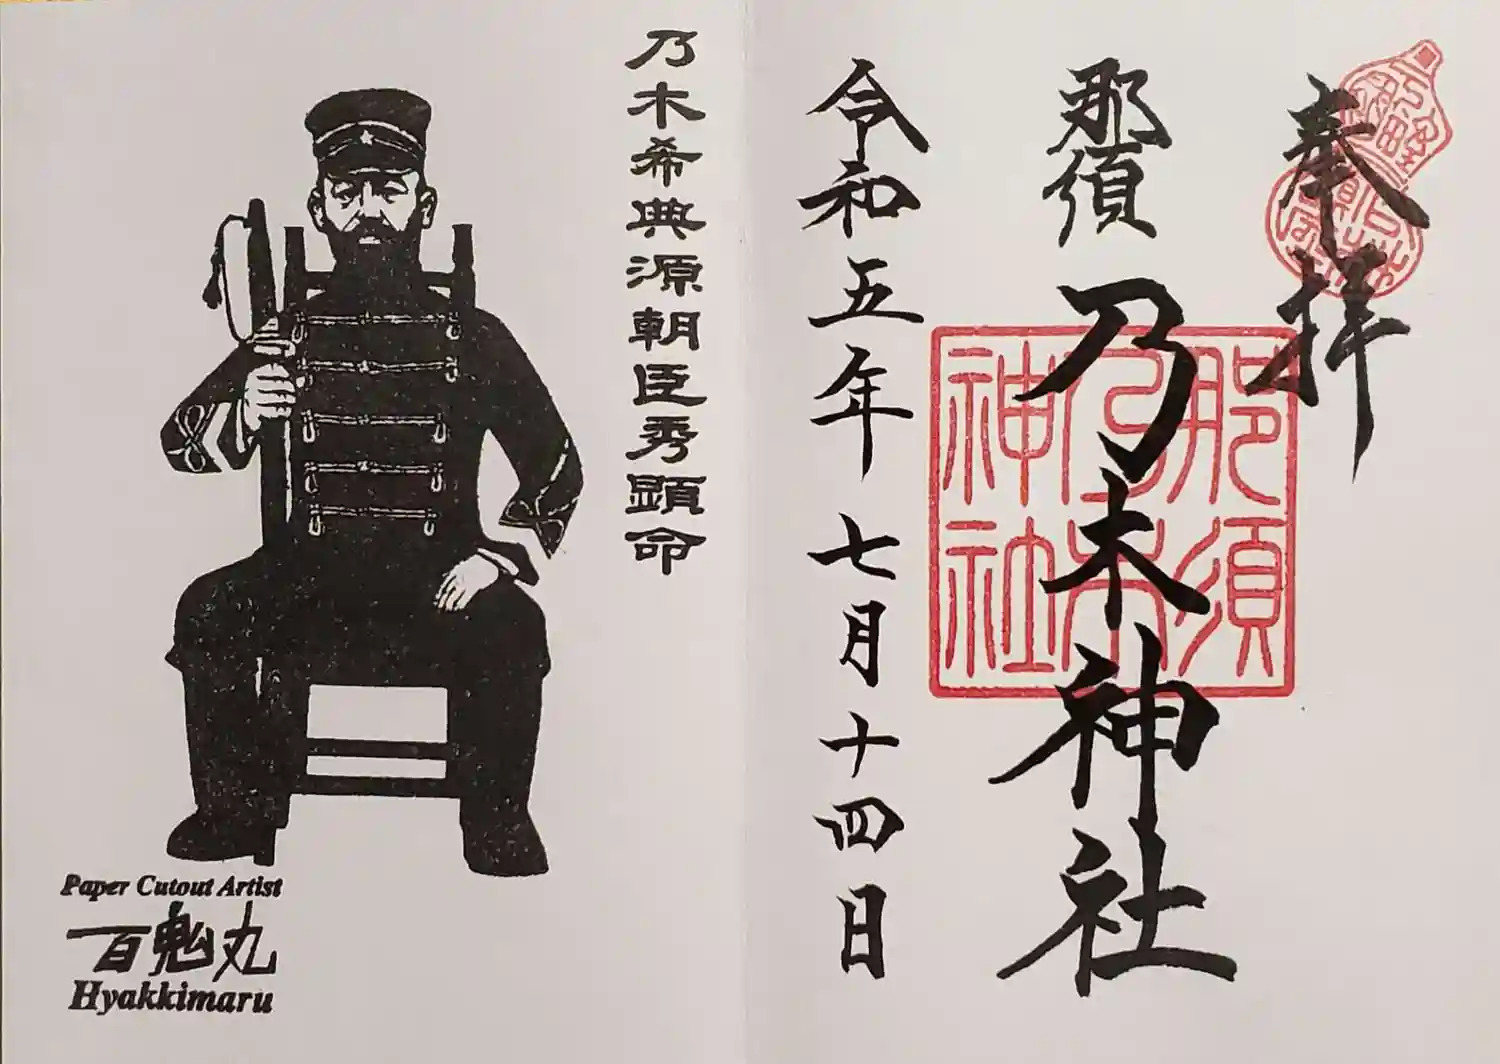 奉拝
那須
乃木神社
令和五年 七月十四日
那須
乃木
神社
乃木希典源朝臣秀顕命
Paper Cutout Artist
百鬼丸
Hyakkimaru